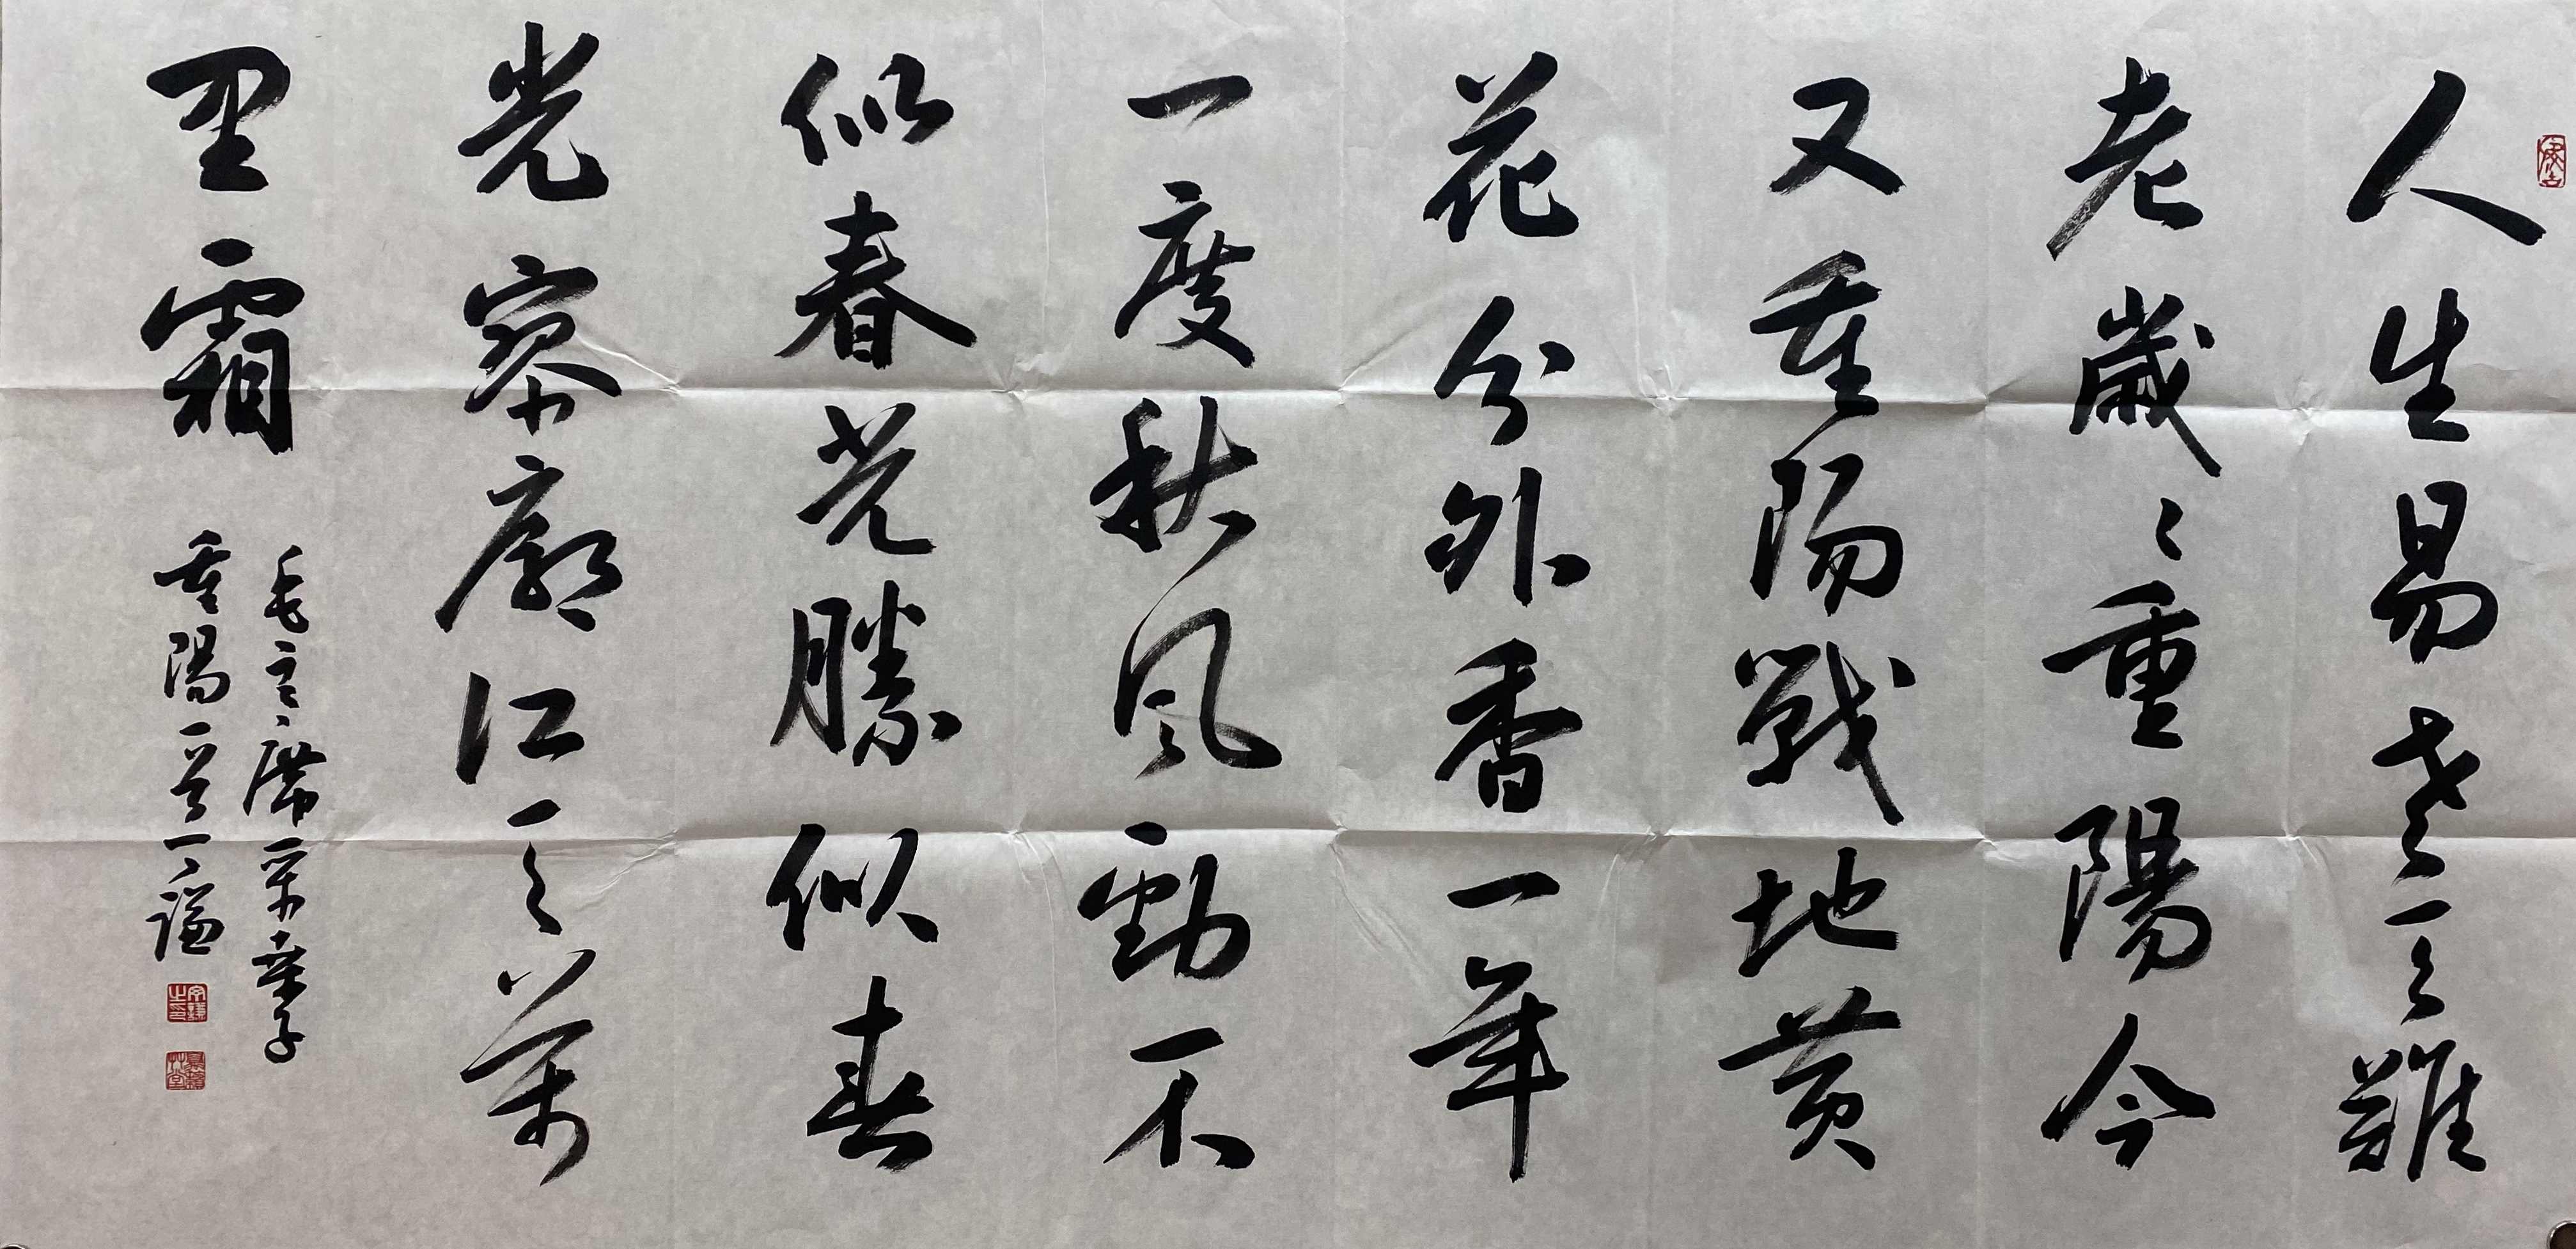 人生易老天難
老歲〻重陽今
又重陽戰地黄
花分外香一年
一度秋風勁不
似春光勝似春
光寥廓江天萬
里霜
毛主席采桑子
重陽一首 謙